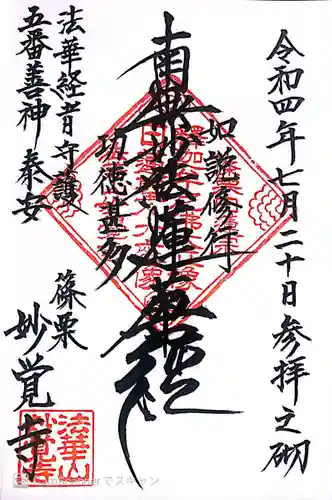 令和四年七月二十日参拝之砌
如説修行
南無妙法蓮華経
功徳甚多
法華経者守護
五番善神 奉安
篠栗
妙覚寺
法華山
妙覚寺
でスキャン